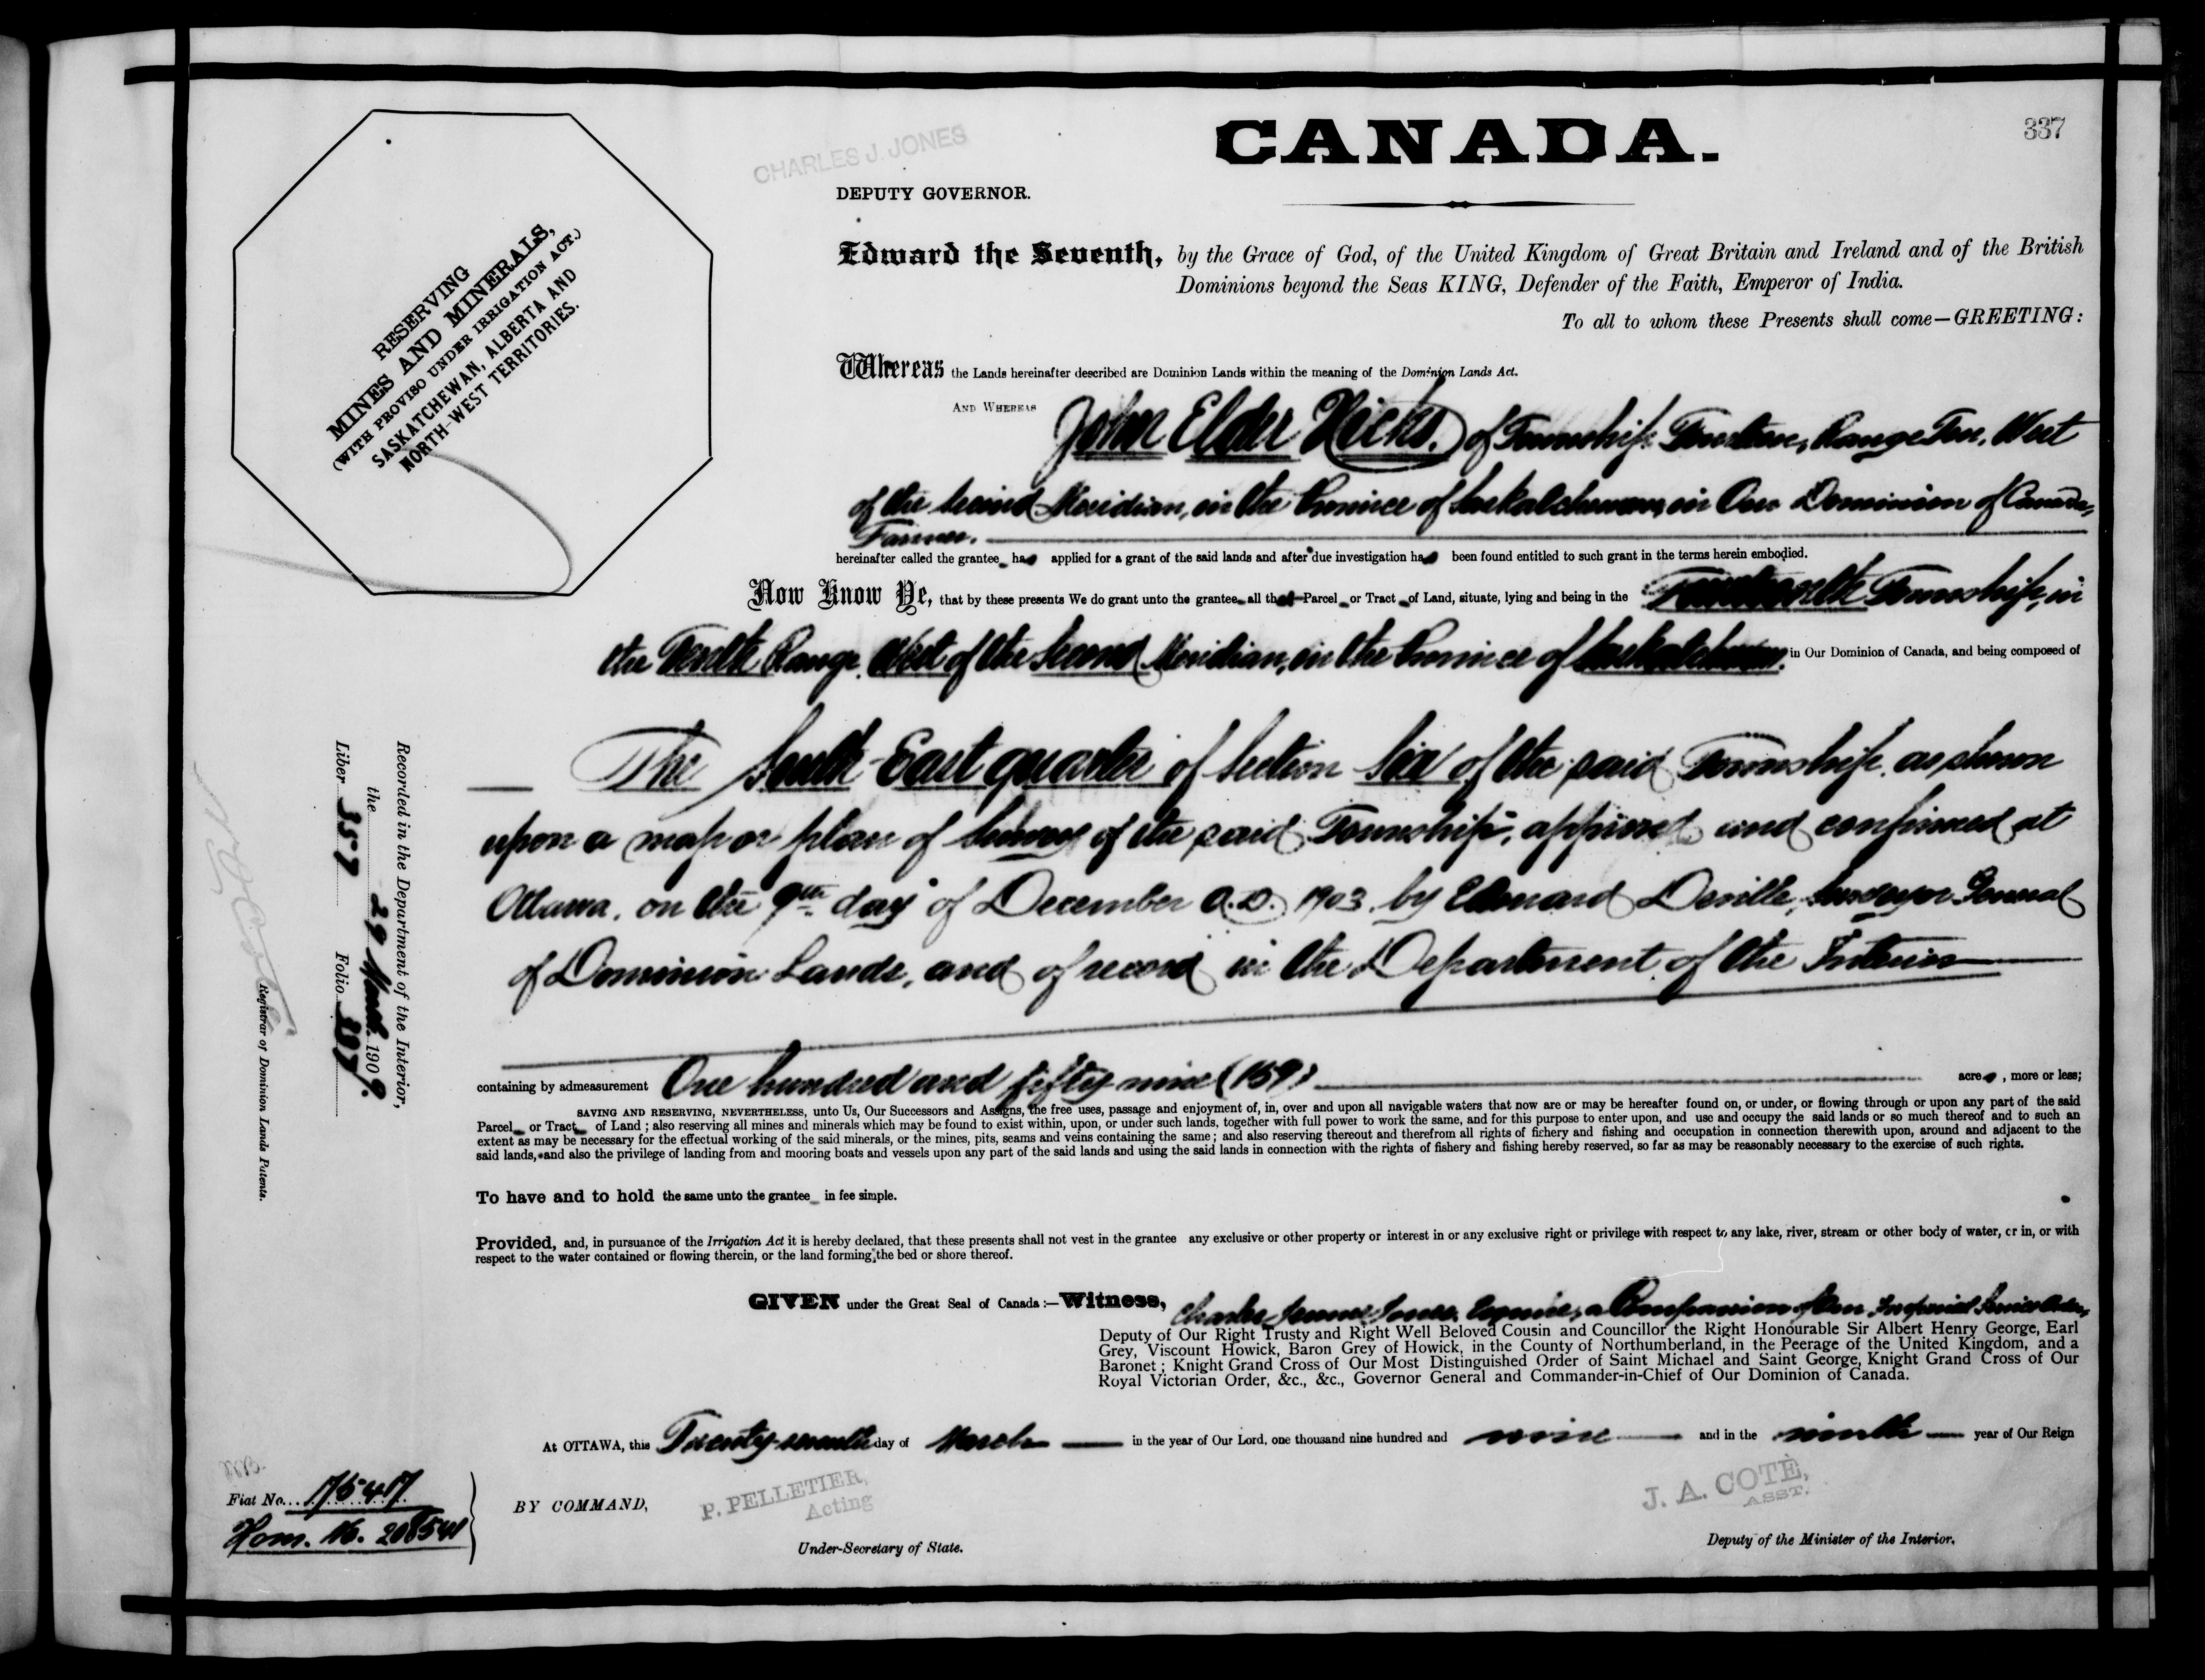 337
CHARLES J. JONES
CANADA.
DEPUTY GOVERNOR.
RESERVING
MINES AND MINERALS,
(WITH PROVISO UNDER IRRIGATION ACT.)
SASKATCHEWAN, ALBERTA AND
NORTH-WEST TERRITORIES.
Edward the Seventh, by the Grace of God, of the United Kingdom of Great Britain and Ireland and of the British
Dominions beyond the Seas KING, Defender of the Faith, Emperor of India.
To all to whom these Presents shall come—GREETING:
Whereas the Lands hereinafter described are Dominion Lands within the meaning of the Dominion Lands Act.
AND WHEREAS John Elder Hicks. of Township Range Ten, West
of the Second Meridian, in the Province of Saskatchewan, in Our Dominion of Canada,
Farmer.
hereinafter called the grantee has applied for a grant of the said lands and after due investigation has been found entitled to such grant in the terms herein embodied.
Now Know Ye, that by these presents We do grant unto the grantee all that Parcel or Tract of Land, situate, lying and being in the Township, in
the Tenth Range, West of the Second Meridian, in the Province of Saskatchewan, in Our Dominion of Canada, and being composed of
The South East quarter of Section Six of the said Township, as shown
upon a map or plan of Survey of the said Township, approved and confirmed at
Ottawa, on the 9th day of December A.D. 1903, by Edouard Deville, Surveyor General
of Dominion Lands, and of record in the Department of the Interior
containing by admeasurement One hundred and fifty nine (159) acres, more or less;
SAVING AND RESERVING, NEVERTHELESS, unto Us, Our Successors and Assigns, the free uses, passage and enjoyment of, in, over and upon all navigable waters that now are or may be hereafter found on, or under, or flowing through or upon any part of the said
Parcel or Tract of Land; also reserving all mines and minerals which may be found to exist within, upon, or under such lands, together with full power to work the same, and for this purpose to enter upon, and use and occupy the said lands or so much thereof and to such an
extent as may be necessary for the effectual working of the said minerals, or the mines, pits, seams and veins containing the same; and also reserving thereout and therefrom all rights of fichery and fishing and occupation in connection therewith upon, around and adjacent to the
said lands, and also the privilege of landing from and mooring boats and vessels upon any part of the said lands and using the said lands in connection with the rights of fishery and fishing hereby reserved, so far as may be reasonably necessary to the exercise of such rights.
To have and to hold the same unto the grantee in fee simple.
Provided, and, in pursuance of the Irrigation Act it is hereby declared, that these presents shall not vest in the grantee any exclusive or other property or interest in or any exclusive right or privilege with respect to any lake, river, stream or other body of water, or in, or with
respect to the water contained or flowing therein, or the land forming the bed or shore thereof.
GIVEN under the Great Seal of Canada:—Witness, Charles Jones, Esquire, a Companion of Our Imperial Service Order,
Deputy of Our Right Trusty and Right Well Beloved Cousin and Councillor the Right Honourable Sir Albert Henry George, Earl
Grey, Viscount Howick, Baron Grey of Howick, in the County of Northumberland, in the Peerage of the United Kingdom, and a
Baronet; Knight Grand Cross of Our Most Distinguished Order of Saint Michael and Saint George, Knight Grand Cross of Our
Royal Victorian Order, &c., &c., Governor General and Commander-in-Chief of Our Dominion of Canada.
At OTTAWA, this Twenty-seventh day of March in the year of Our Lord, one thousand nine hundred and nine and in the ninth year of Our Reign
BY COMMAND,
P. PELLETIER,
Acting
Under-Secretary of State.
J. A. COTÉ,
ASST.
Deputy of the Minister of the Interior.
Recorded in the Department of the Interior,
the 29 March 1909.
Liber 357 Folio 337
N. O. Coté
Registrar of Dominion Lands Patents.
Fiat No. 17547
Hom. No. 208541